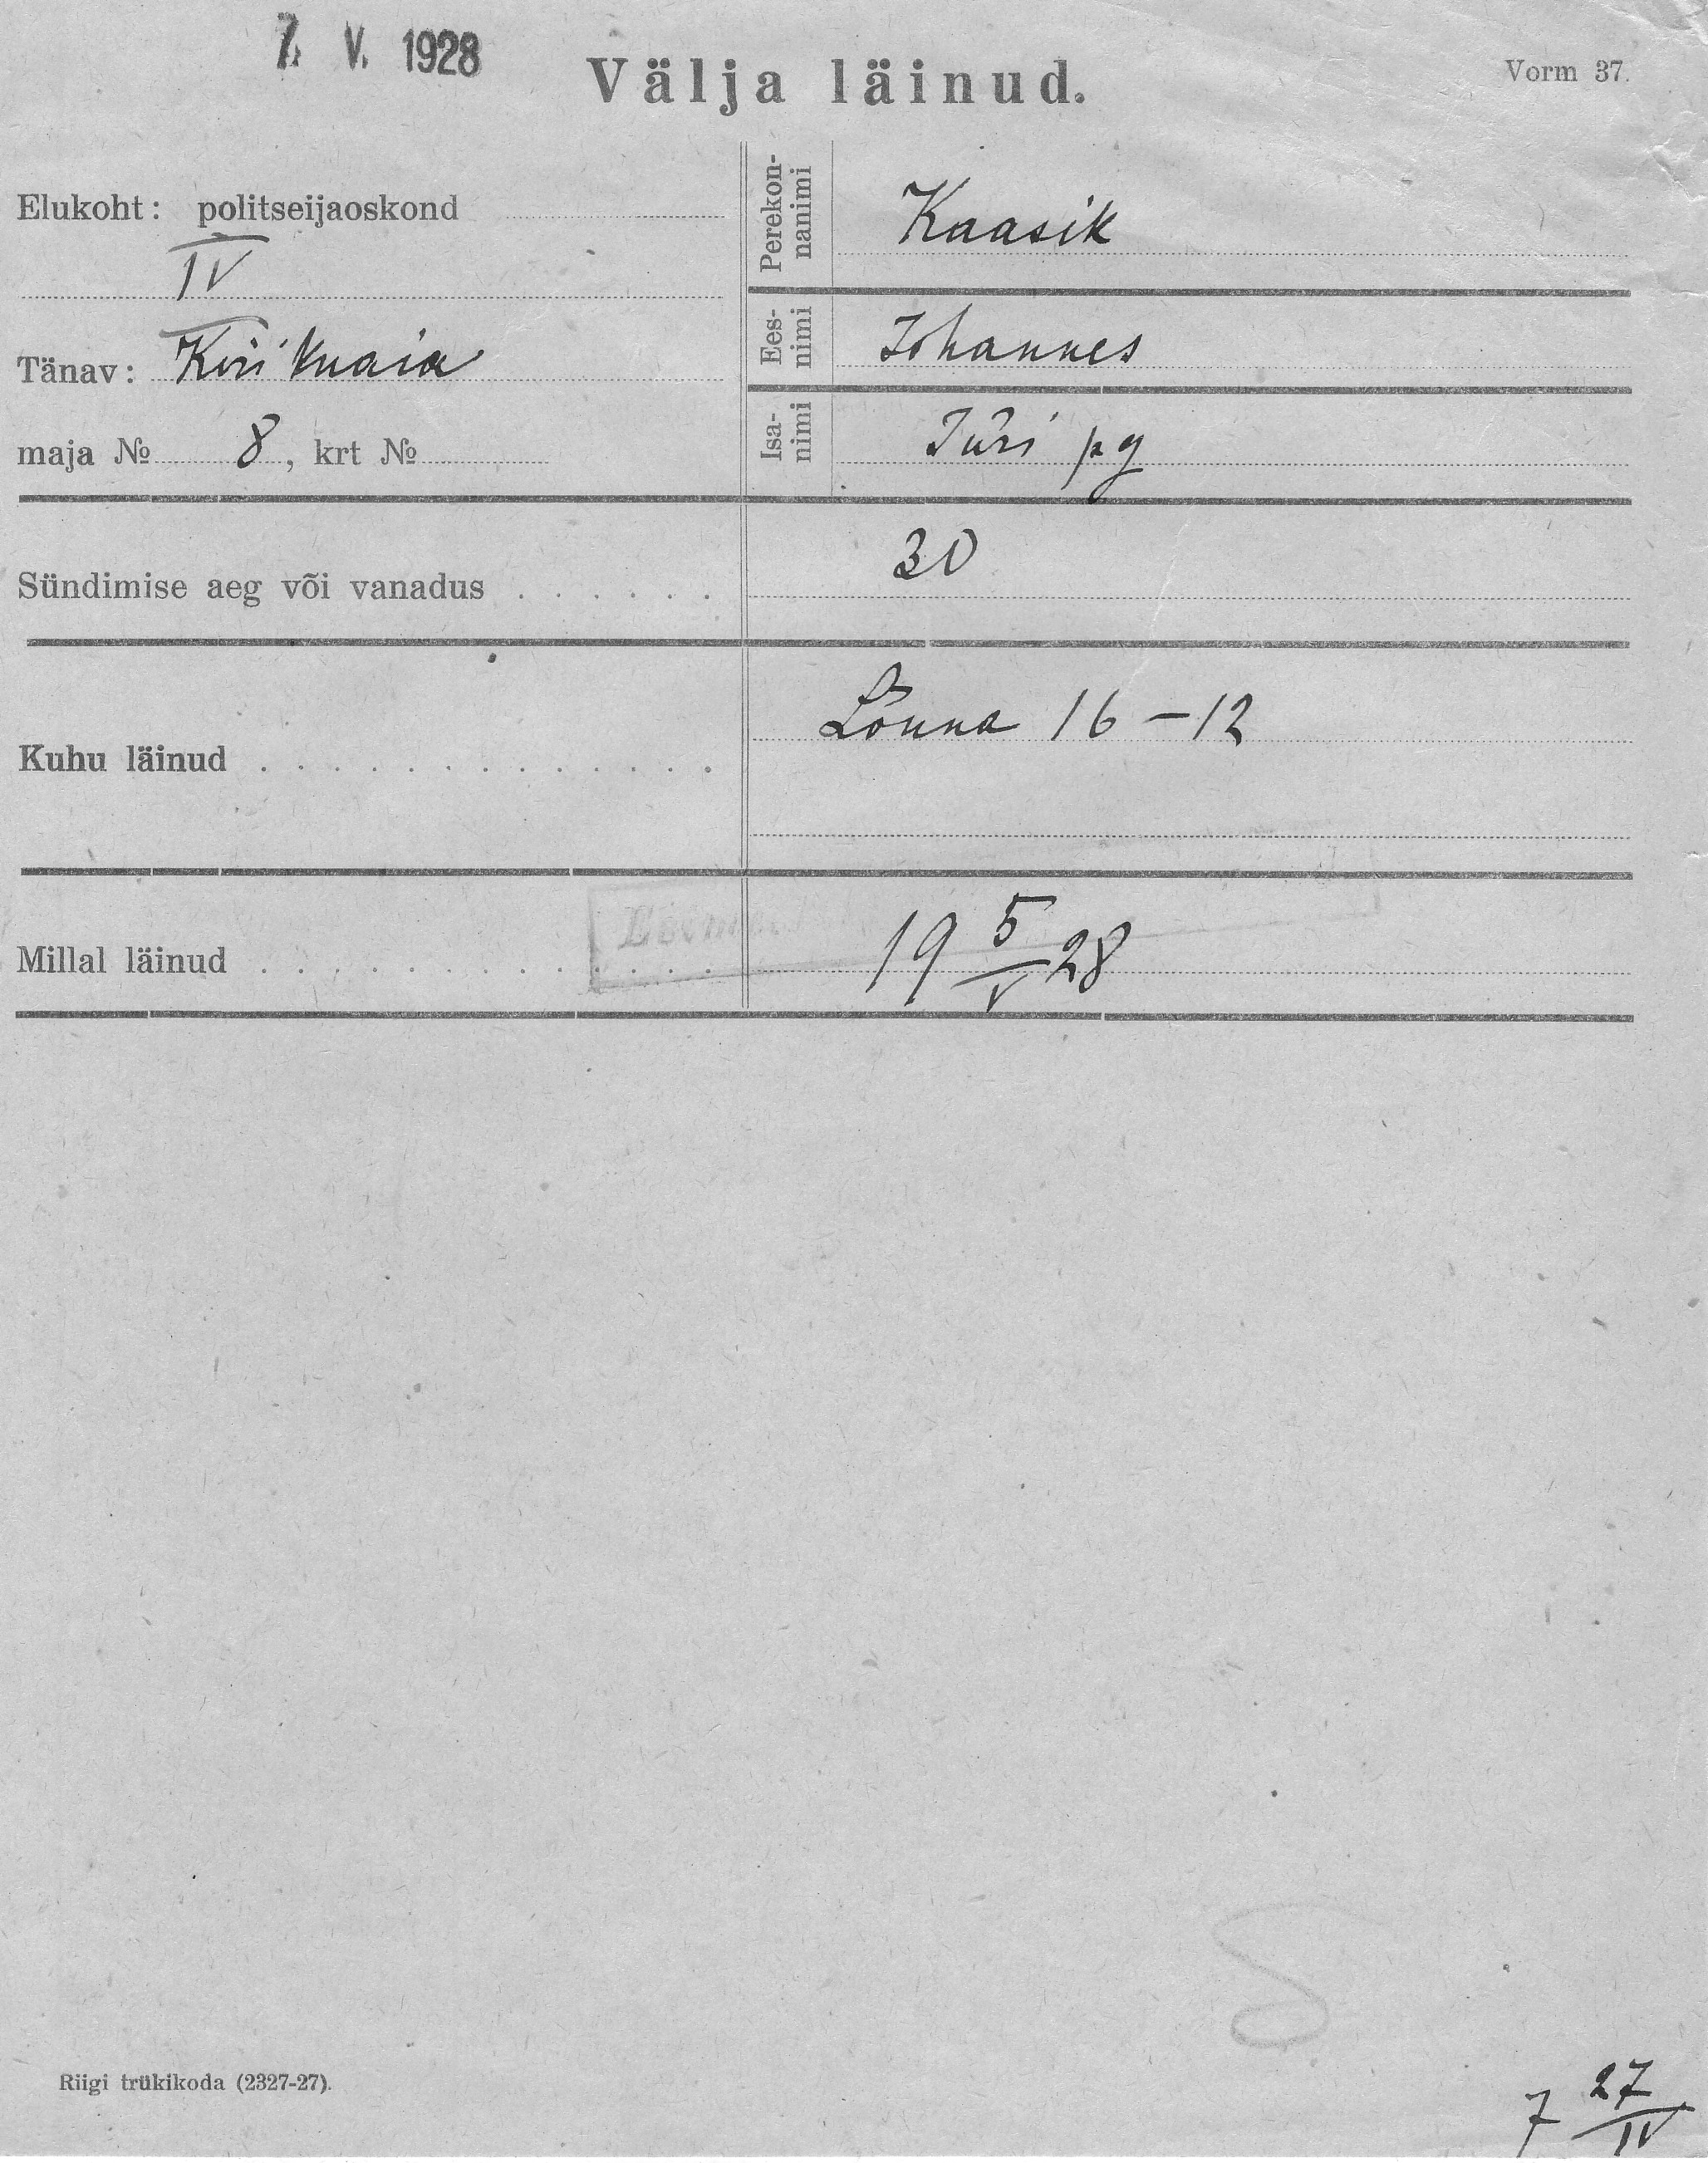 7. V. 1928
Välja läinud.
Vorm 37.
Elukoht: politseijaoskond
IV
Tänav: Kirikuaia
maja № 8, krt №
Perekon-
nanimi
Kaasik
Ees-
nimi
Johannes
Isa-
nimi
Jüri pg
Sündimise aeg või vanadus . . . . . .
30
Kuhu läinud . . . . . . . . . . . . .
Lõuna 16-12
Millal läinud . . . . . . . . . . . . .
19 5/V 28
Riigi trükikoda (2327-27).
7 27/IV